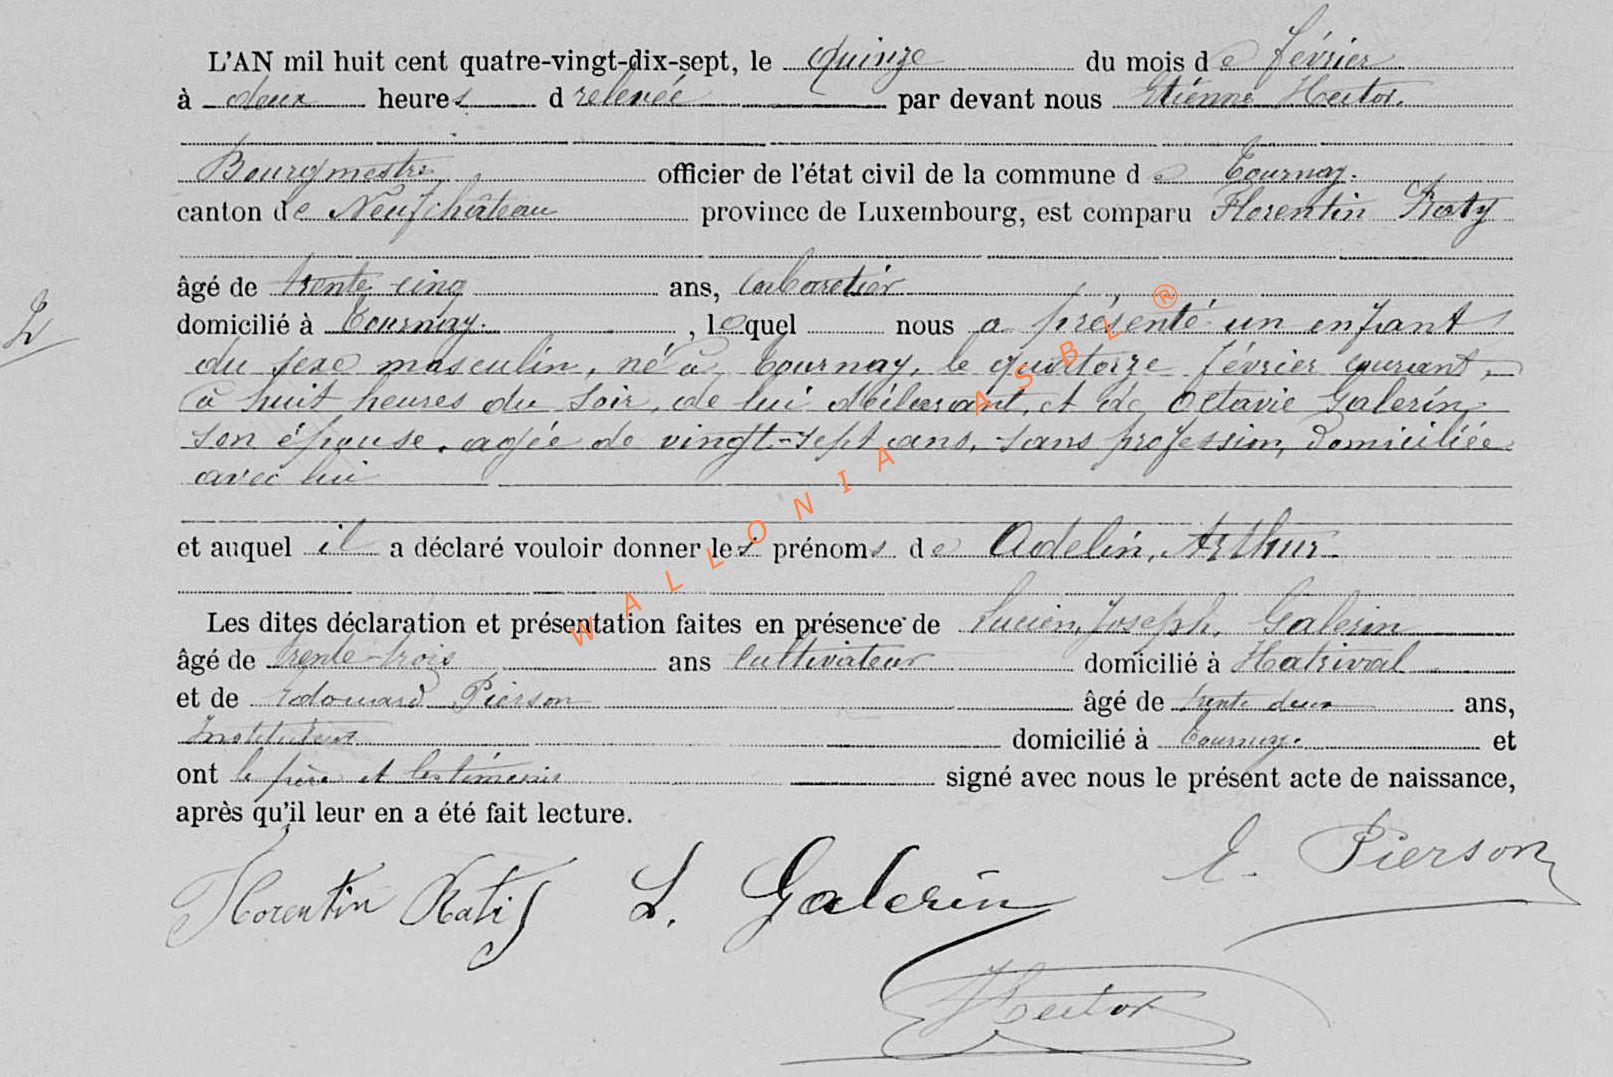 L'AN mil huit cent quatre-vingt-dix-sept, le quinze du mois de février
à deux heures d relevée par devant nous Etienne Hector.
Bourgmestre officier de l'état civil de la commune de Tournay.
canton de Neufchâteau province de Luxembourg, est comparu Florentin Raty
âgé de trente cinq ans, cabaretier
domicilié à Tournay. , lequel nous a présenté un enfant
du sexe masculin, né à Tournay, le quatorze février courant,
à huit heures du soir, de lui déclarant, et de Octavie Galerin,
son épouse, agée de vingt-sept ans, sans profession, domiciliée
avec lui
et auquel il a déclaré vouloir donner les prénoms de Adelin, Arthur.
Les dites déclaration et présentation faites en présence de Lucien, Joseph, Galerin
âgé de trente-trois ans cultivateur domicilié à Hatrival
et de Edouard Pierson âgé de trente deux ans,
Instituteur domicilié à Tournay. et
ont le père et les témoins signé avec nous le présent acte de naissance,
après qu'il leur en a été fait lecture.
Florentin Raty L. Galerin E. Pierson
Hector
2
WALLONIA ASBL ®